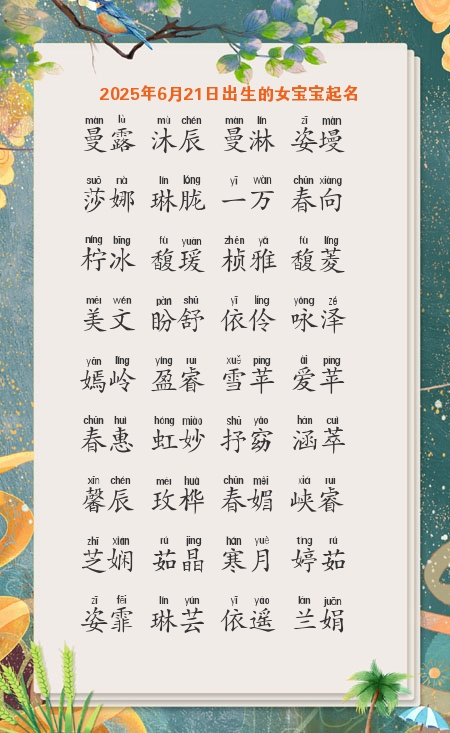 2025年6月21日出生的女宝宝起名
màn lù mù chén màn lín zī màn
曼露 沐辰 曼淋 姿墁
suō nà lín lóng yī wàn chūn xiàng
莎娜 琳胧 一万 春向
níng bīng fù yuàn zhēn yǎ fù líng
柠冰 馥瑗 桢雅 馥菱
měi wén pàn shū yī líng yǒng zé
美文 盼舒 依伶 咏泽
yān lǐng yíng ruì xuě píng ài píng
嫣岭 盈睿 雪苹 爱苹
chūn huì hóng miào shū yǎo hán cuì
春惠 虹妙 抒窈 涵萃
xīn chén méi huà chūn mèi xiá ruì
馨辰 玫桦 春媚 峡睿
zhī xián rú jīng hán yuè tíng rú
芝娴 茹晶 寒月 婷茹
zī fēi lín yún yī yáo lán juān
姿霏 琳芸 依遥 兰娟